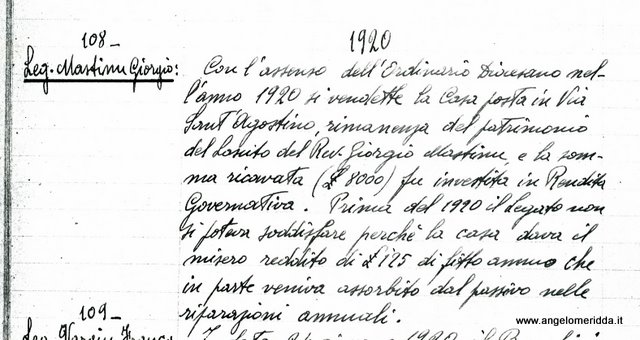 108-
1920
Leg. Mastinu Giorgio:
Con l'assenso dell'Ordinario Diocesano nel-
l'anno 1920 si vendette la Casa posta in Via
Sant'Agostino, rimanenza del patrimonio
del Lascito del Rev. Giorgio Mastinu, e la som-
ma ricavata (£ 8000) fu investita in Rendita
Governativa. Prima del 1920 il legato non
si poteva soddisfare perchè la casa dava il
misero reddito di £ 125 di fitto annuo che
in parte veniva assorbito dal passivo nelle
riparazioni annuali.
109-
www.angelomeridda.it